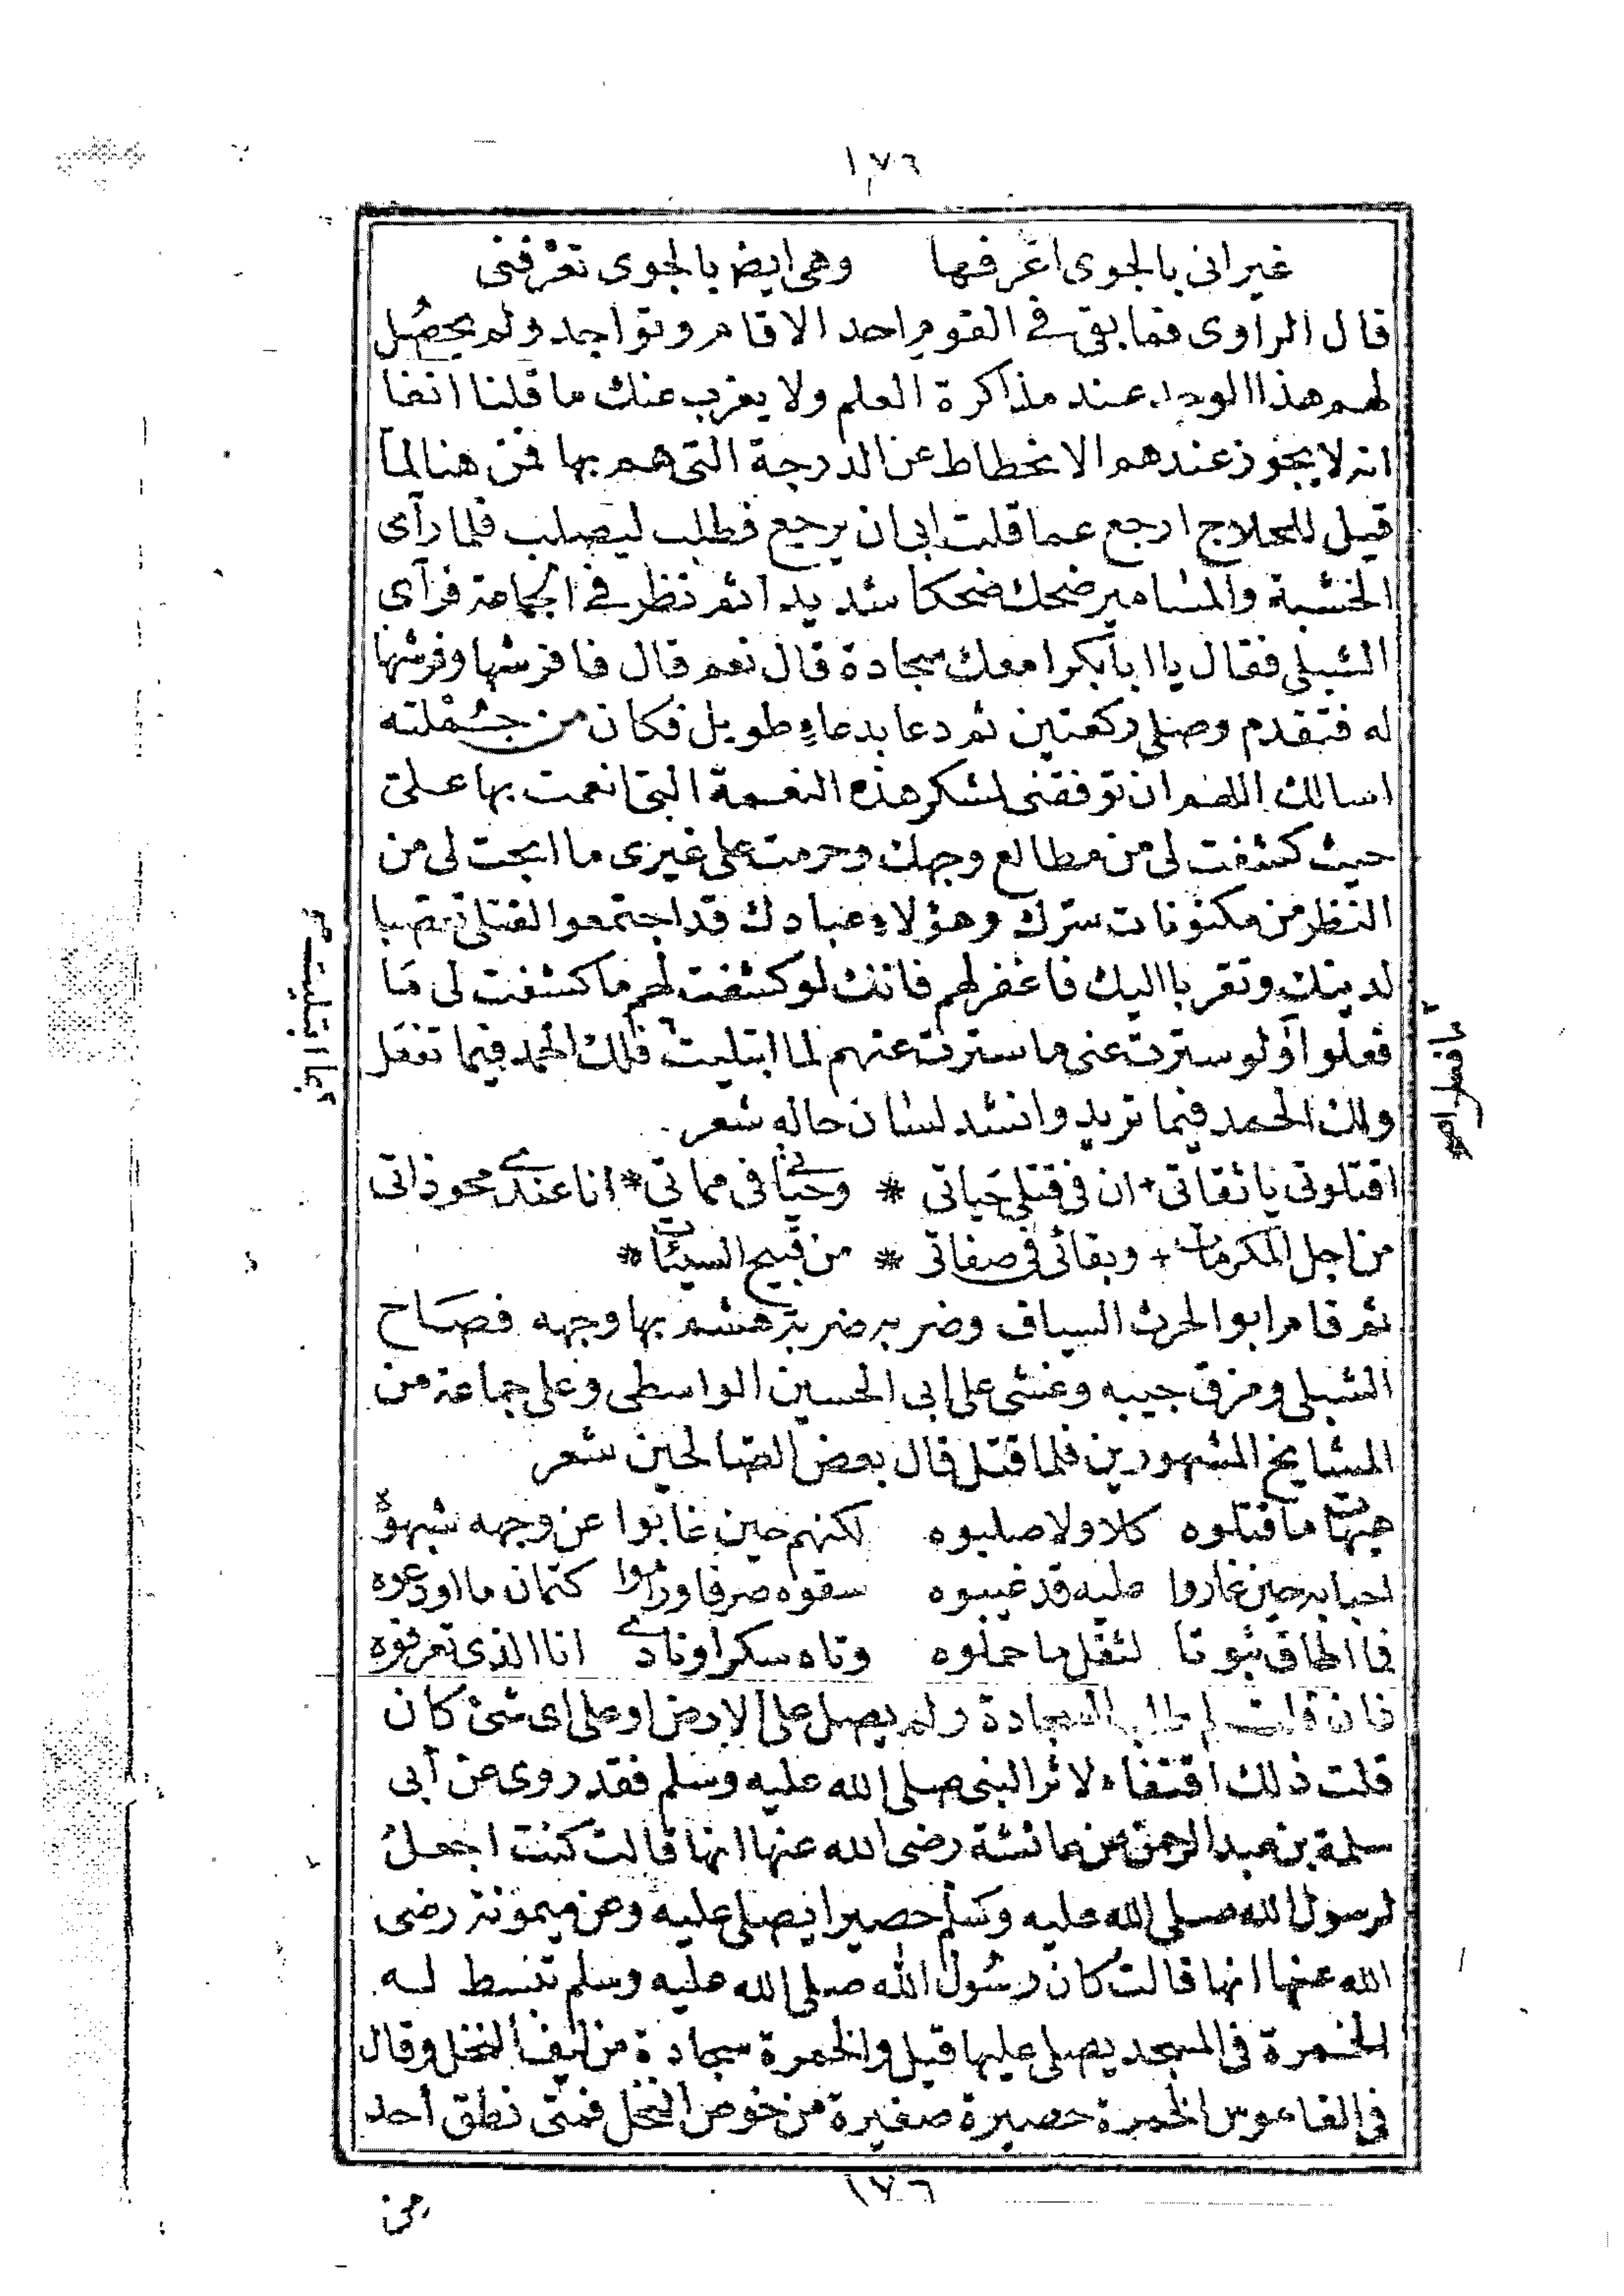 ١٧٦
غير اني بالجوى اعرفها وهي ايض بالجوى تعرفني
قال الراوى فما بقى في القوم احد الا قام وتواجد ولم يحصل
لهم هذا الوجد عند مذاكرة العلم ولا يعزب عنك ما قلنا انفا
انه لا يجوز عندهم الانحطاط عن الدرجة التي هم بها فمن هنا لما
قيل للحلاج ارجع عما قلت ابى ان يرجع فطلب ليصلب فلما رآى
الخشبة والمسامير ضحك ضحكا شديدا ثم نظر في الجماعة فرآى
الشبلي فقال يا ابا بكر امعك سجادة قال نعم قال فافرشها وفرشها
له فتقدم وصلى ركعتين ثم دعا بدعاء طويل فكان من جملته
اسالك اللهم ان توفقني لشكر هذه النعمة التي انعمت بها على
حيث كشفت لي من مطالع وجهك وحرمت على غيرى ما ابحت لي من
النظر من مكنونات سترك وهؤلاء عبادك قد اجتمعوا لقتلي تعصبا
لدينك وتقربا اليك فاغفر لهم فانك لو كشفت لهم ما كشفت لي ما
فعلوا أو لو سترت عنى ما سترت عنهم لما ابتليت فلك الحمد فيما تفعل
بما ابتليت
ولك الحمد فيما تريد وانشد لسان حاله شعر
اقتلوني يا ثقاتي + ان في قتلي حياتي * وحياتي في مماتي * انا عندى محو ذاتي
من اجل المكرمات + وبقائي في صفاتي * من قبيح السيئات *
ثم قام ابو الحرث السياف وضربه ضربة هشم بها وجهه فصاح
الشبلي ومزق جيبه وغشي على ابي الحسين الواسطي وعلى جماعة من
المشايخ المشهورين فلما قتل قال بعض الصالحين شعر
هيهات ما قتلوه كلا ولا صلبوه لكنهم حين غابوا عن وجهه شبهوه
احبابه حين غاروا عليه قد غيبوه سقوه صرفا وراموا كتمان ما اودعوه
فما اطاق ثبوتا لثقل ما حملوه وتاه سكرا ونادى انا الذى تعرفوه
فان قلت لم طلب السجادة ولم يصل على الارض او على اى شئ كان
قلت ذلك اقتفاء لاثر النبي صلى الله عليه وسلم فقد روى عن أبي
سلمة بن عبد الرحمن عن عائشة رضى الله عنها انها قالت كنت اجعل
لرسول الله صلى الله عليه وسلم حصيرا يصلي عليه وعن ميمونة رضى
الله عنها انها قالت كان رسول الله صلى الله عليه وسلم تبسط له
الخمرة في المسجد يصلي عليها قيل والخمرة سجادة من ليف النخل وقال
في القاموس الخمرة حصيرة صغيرة من خوص النخل فمتى نطق أحد
١٧٦
من